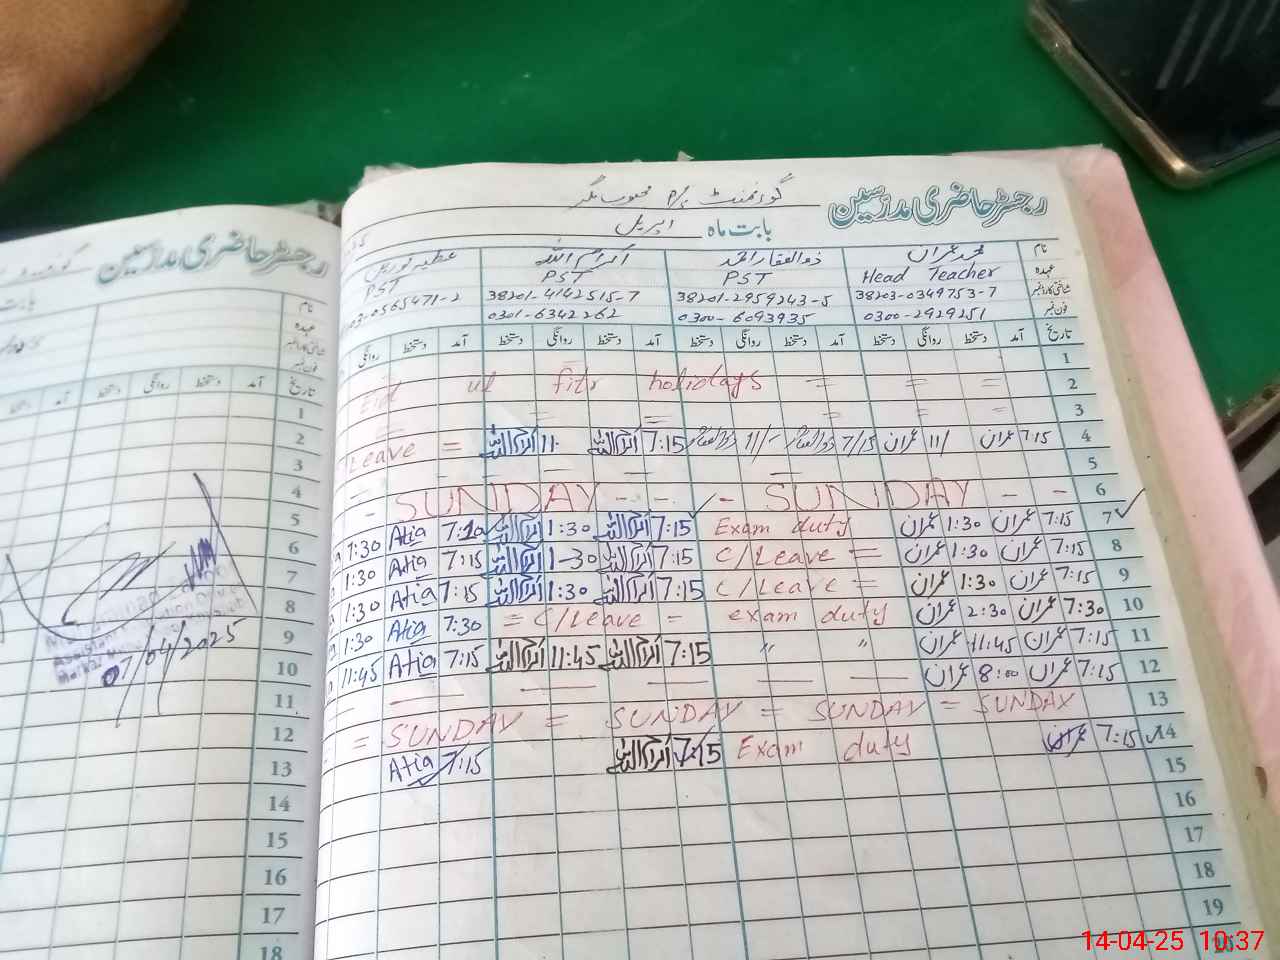 رجسٹر حاضری مدرسین گورنمنٹ P/S محبوب نگر
بابت ماہ اپریل
نام محمد عمران ذوالفقار احمد اکرام اللہ عطیہ نورین
عہدہ Head Teacher PST PST PST
شناختی کارڈ نمبر 38203-0349753-7 38201-2959243-5 38201-4142515-7 03-0565471-2
فون نمبر 0300-2929251 0300-6093935 0301-6342262
تاریخ آمد دستخط روانگی دستخط آمد دستخط روانگی دستخط آمد دستخط روانگی دستخط آمد دستخط روانگی
1
2 Eid ul fitr holidays = = =
3 = = = =
4 7:15 عمران 11/ عمران 7/15 ذوالفقار 11/- ذوالفقار 7:15 اکرام اللہ 11 اکرام اللہ Leave =
5 — — — —
6 - SUNDAY - - - SUNDAY - -
7 7:15 عمران 1:30 عمران Exam duty 7:15 اکرام اللہ 1:30 اکرام اللہ 7:10 Atia 1:30
8 7:15 عمران 1:30 عمران C/Leave = 7:15 اکرام اللہ 1-30 اکرام اللہ 7:15 Atia 1:30
9 7:15 عمران 1:30 عمران C/Leave = 7:15 اکرام اللہ 1:30 اکرام اللہ 7:15 Atia 1:30
10 7:30 عمران 2:30 عمران exam duty = C/Leave = 7:30 Atia 1:30
11 7:15 عمران 11:45 عمران " " 7:15 اکرام اللہ 11:45 اکرام اللہ 7:15 Atia 11:45
12 7:15 عمران 8:00 عمران — — — — —
13 = SUNDAY = SUNDAY = SUNDAY = SUNDAY
14 7:15 عمران Exam duty 7:15 اکرام اللہ 7:15 Atia
15
16
17
18
19
رجسٹر حاضری مدرسین
نام
عہدہ
شناختی کارڈ نمبر
فون نمبر
تاریخ آمد دستخط روانگی دستخط
1
2
3
4
5
6
7
8
9
10
11
12
13
14
15
16
17
18
07/04/2025
14-04-25 10:37